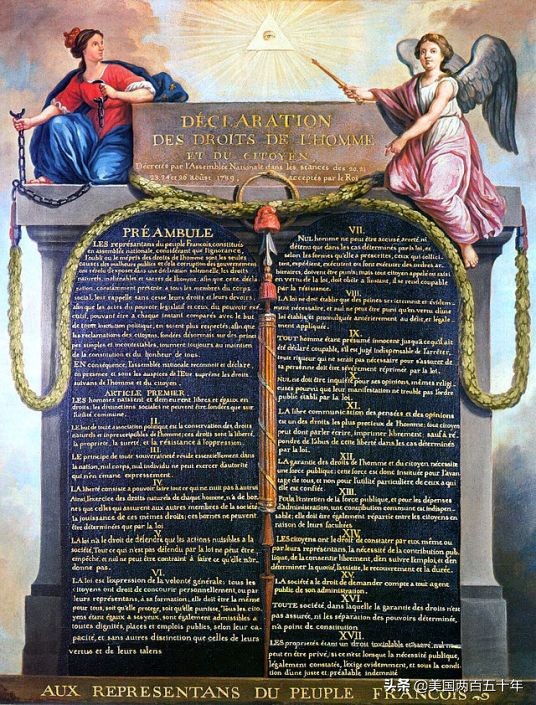 DÉCLARATION
DES DROITS DE L'HOMME
ET DU CITOYEN
Décrétés par l'Assemblée Nationale dans les séances des 20, 21
23, 24 et 26 août 1789, acceptés par le Roi
PRÉAMBULE
LES représantans du peuple Francois, constitués
en assemblée nationale, considérant que l'ignorance,
l'oubli ou le mépris des droits de l'homme sont les seules
causes des malheurs publics et de la corruption des gouvernemens
ont résolu d'exposer dans une déclaration solemnelle, les droits
naturels, inaliénables et sacrés de l'homme; afin que cette décla
ration, constamment présente a tous les membres du corps
social, leur rappelle sans cesse leurs droits et leurs devoirs;
afin que les actes du pouvoir législatif et ceux du pouvoir exé-
cutif, pouvant être a chaque instant comparés avec le but
de toute institution politique, en soient plus respectés; afin que
les réclamations des citoyens, fondées désormais sur des princi-
pes simples et incontestables, tournent toujours au maintien
de la constitution et du bonheur de tous.
EN conséquence, l'assemblée nationale reconnoit et déclare
en presence et sous les auspices de l'Etre suprême les droits
suivans de l'homme et du citoyen.
ARTICLE PREMIER.
LES hommes naissent et demeurent libres et égaux en
droits; les distinctions sociales ne peuvent être fondées que sur
l'utilité commune.
II.
LE but de toute association politique est la conservation des droits
naturels et imprescriptibles de l'homme; ces droits sont la liberté,
la propriété, la sureté, et la résistance à l'oppression.
III.
LE principe de toute souveraineté réside essentiellement dans
la nation, nul corps, nul individu ne peut exercer d'autorité
qui n'en émane expressément.
IV.
LA liberté consiste à pouvoir faire tout ce qui ne nuit pas à autrui
Ainsi, l'exercice des droits naturels de chaque homme, n'a de bor-
nes que celles qui assurent aux autres membres de la société
la jouissance de ces mêmes droits; ces bornes ne peuvent
être déterminées que par la loi.
V.
LA loi n'a le droit de défendre que les actions nuisibles à la
société. Tout ce qui n'est pas défendu par la loi ne peut être
empêché, et nul ne peut être contraint à faire ce qu'elle n'or-
donne pas.
VI.
LA loi est l'expression de la volonté générale; tous les
citoyens ont droit de concourir personnellement, ou par
leurs représentans, à sa formation; elle doit être la même
pour tous, soit qu'elle protege, soit qu'elle punisse. Tous les citoy-
yens étant égaux à ses yeux, sont également admissibles à
toutes dignités, places et emplois publics, selon leur ca-
pacité, et sans autres distinction que celles de leurs
vertus et de leurs talens
VII.
NUL homme ne peut être accusé, arreté, ni
détenu que dans les cas déterminés par la loi, et
selon les formes qu'elle a prescrites, ceux qui sollici-
tent, expédient, exécutent ou font exécuter des ordres ar-
bitraires, doivent être punis; mais tout citoyen appelé ou saisi
en vertu de la loi, doit obéir a l'instant, il se rend coupable
par la résistance.
VIII.
LA loi ne doit établir que des peines strictement et évidem-
ment nécessaire, et nul ne peut être puni qu'en vertu d'une
loi établie et promulguée antérieurement au délit, et légale-
ment appliquée.
IX.
TOUT homme étant présumé innocent jusqu'a ce qu'il ait
été déclaré coupable, s'il est jugé indispensable de l'arrêter,
toute rigueur qui ne serait pas nécessaire pour s'assurer de
sa personne doit être sévèrement réprimé par la loi.
X.
NUL ne doit être inquiété pour ses opinions, mêmes religi-
euses pourvu que leur manifestation ne trouble pas l'ordre
public établi par la loi.
XI.
LA libre communication des pensées et des opinions
est un des droits les plus precieux de l'homme; tout citoyen
peut donc parler écrire, imprimer librement; sauf à ré-
pondre de l'abus de cette liberté dans les cas déterminés
par la loi.
XII.
LA garantie des droits de l'homme et du citoyen, nécessite
une force publique; cette force est donc instituée pour l'avan-
tage de tous, et non pour l'utilité particuliere de ceux a qui
elle est confiée.
XIII.
Pour l'entretien de la force publique, et pour les dépenses
d'administration, une contribution commune est indispen-
sable; elle doit être également répartie entre les citoyens en
raison de leurs facultées
XIV.
LES citoyens ont le droit de constater par eux même ou
par leurs représentans, la nécessité de la contribution pub-
lique, de la consentir librement, d'en suivre l'emploi, et d'en
déterminer la quotité, l'assiette, le recouvrement et la durée.
XV.
LA société a le droit de demander compte a tout agent
public de son administration.
XVI.
TOUTE société, dans laquelle la garantie des droits n'est
pas assurée, ni les séparation des pouvoirs déterminée,
n'a point de constitution
XVII.
LES propriétés étant un droit inviolable et sacré, nul ne
peut en être privé, si ce n'est lorsque la nécessité publique,
légalement constatée, l'exige evidemment, et sous la condi-
tion d'une juste et préalable indemnité
AUX REPRESENTANS DU PEUPLE FRANCOIS
头条 @美国两百五十年